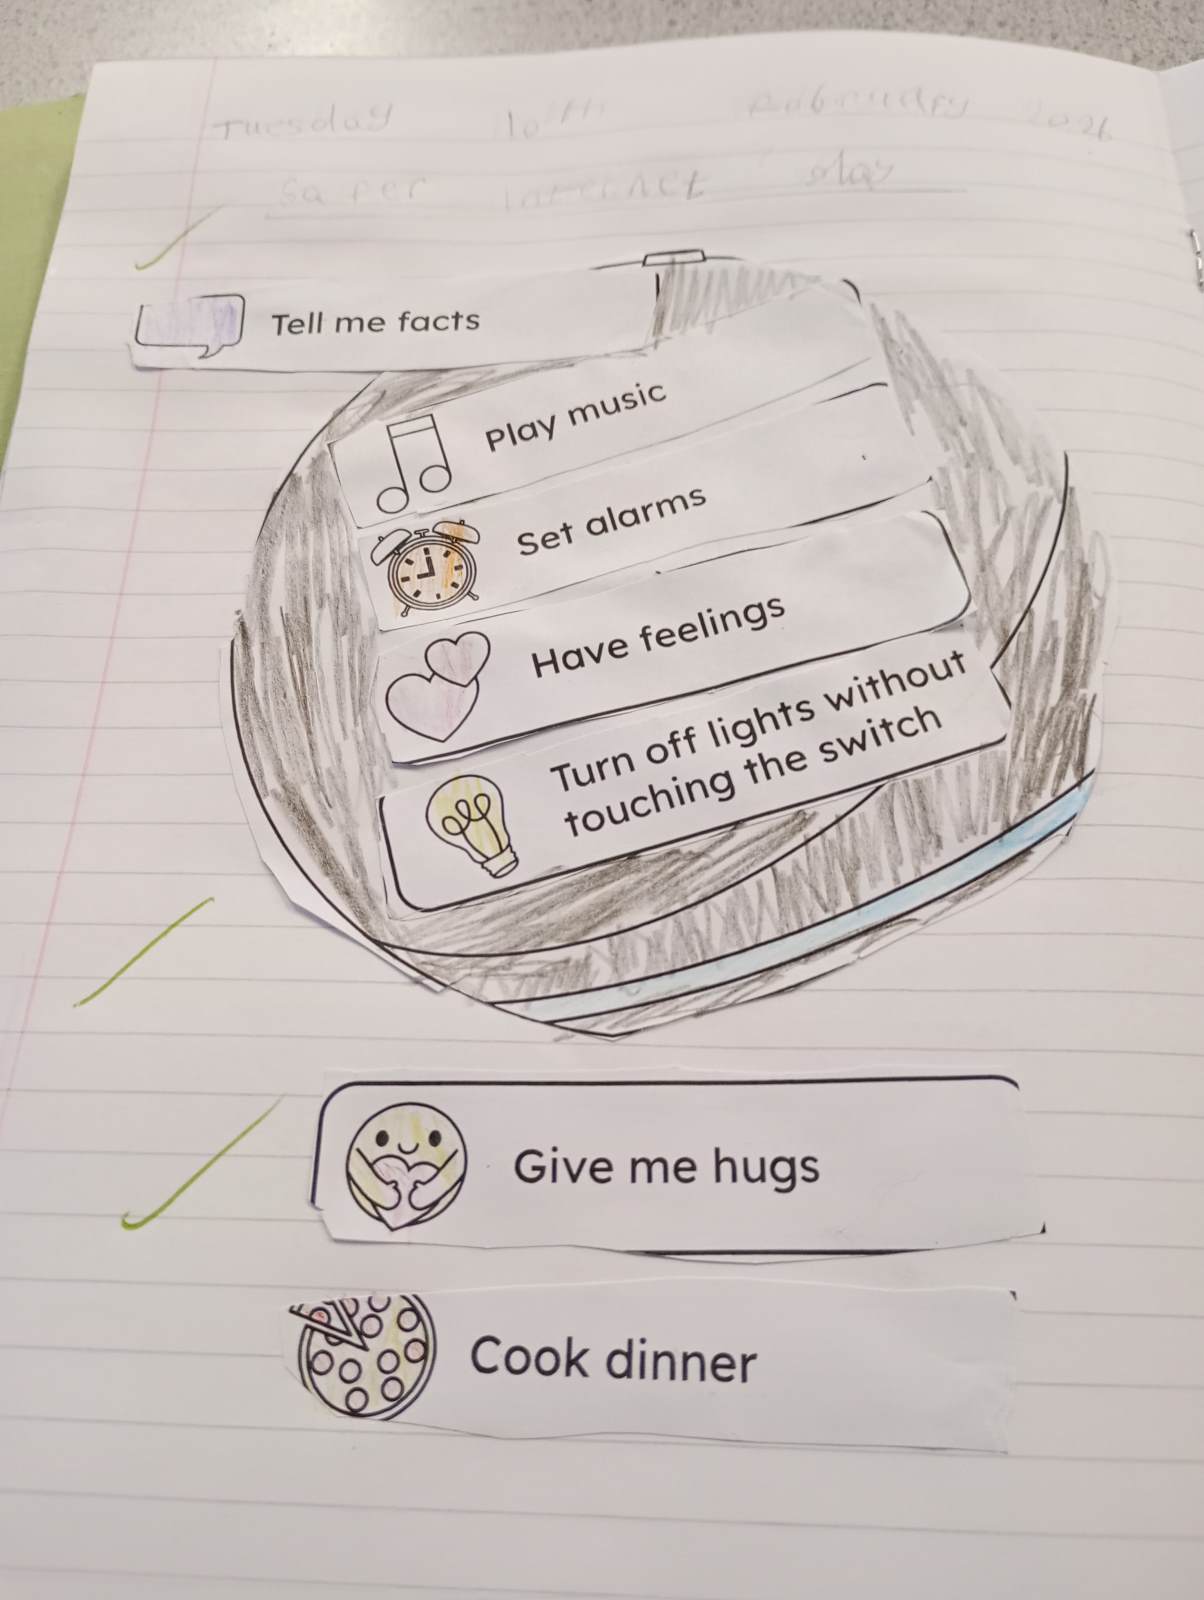 Tuesday 10th February 2026
Safer internet day
Tell me facts
Play music
Set alarms
Have feelings
Turn off lights without
touching the switch
Give me hugs
Cook dinner